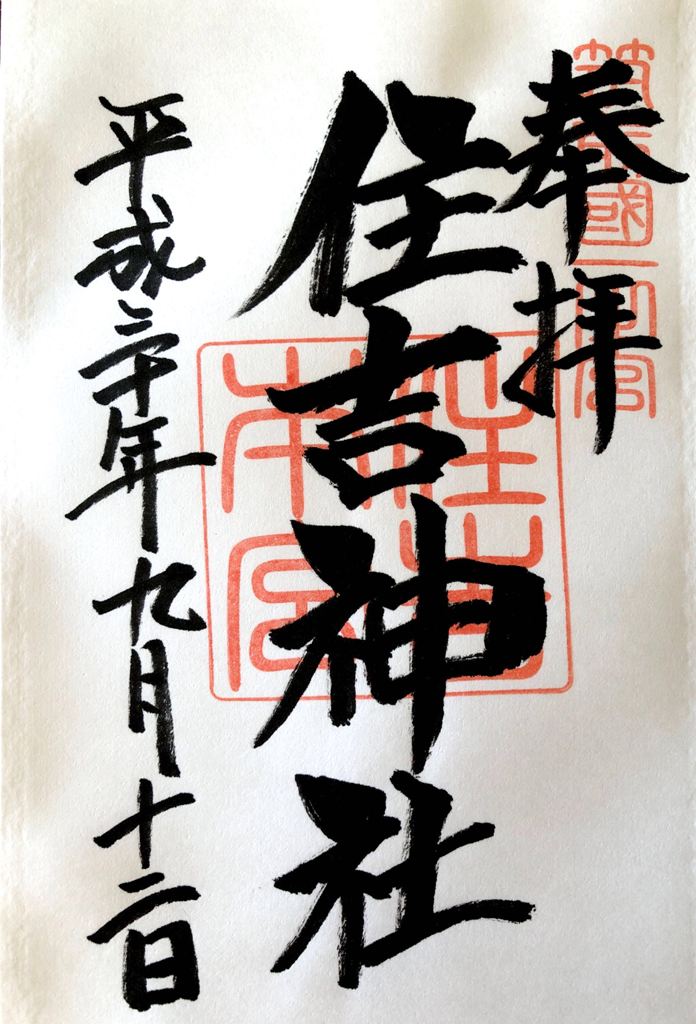 筑前國一宮
奉拝
住吉神社
住吉
本宮
平成三十年九月十二日